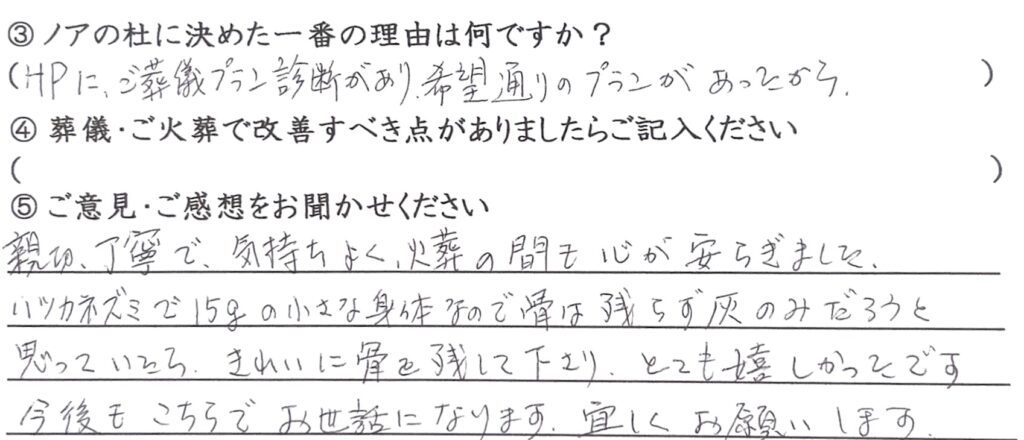 ③ ノアの杜に決めた一番の理由は何ですか？
(HPに、ご葬儀プラン診断があり、希望通りのプランがあったから.)
④ 葬儀・ご火葬で改善すべき点がありましたらご記入ください
( )
⑤ ご意見・ご感想をお聞かせください
親切、丁寧で、気持ちよく、火葬の間も心が安らぎました.
ハツカネズミで15gの小さな身体なので骨は残らず灰のみだろうと
思っていたら、きれいに骨を残して下さり、とても嬉しかったです
今後もこちらでお世話になります. 宜しくお願いします.